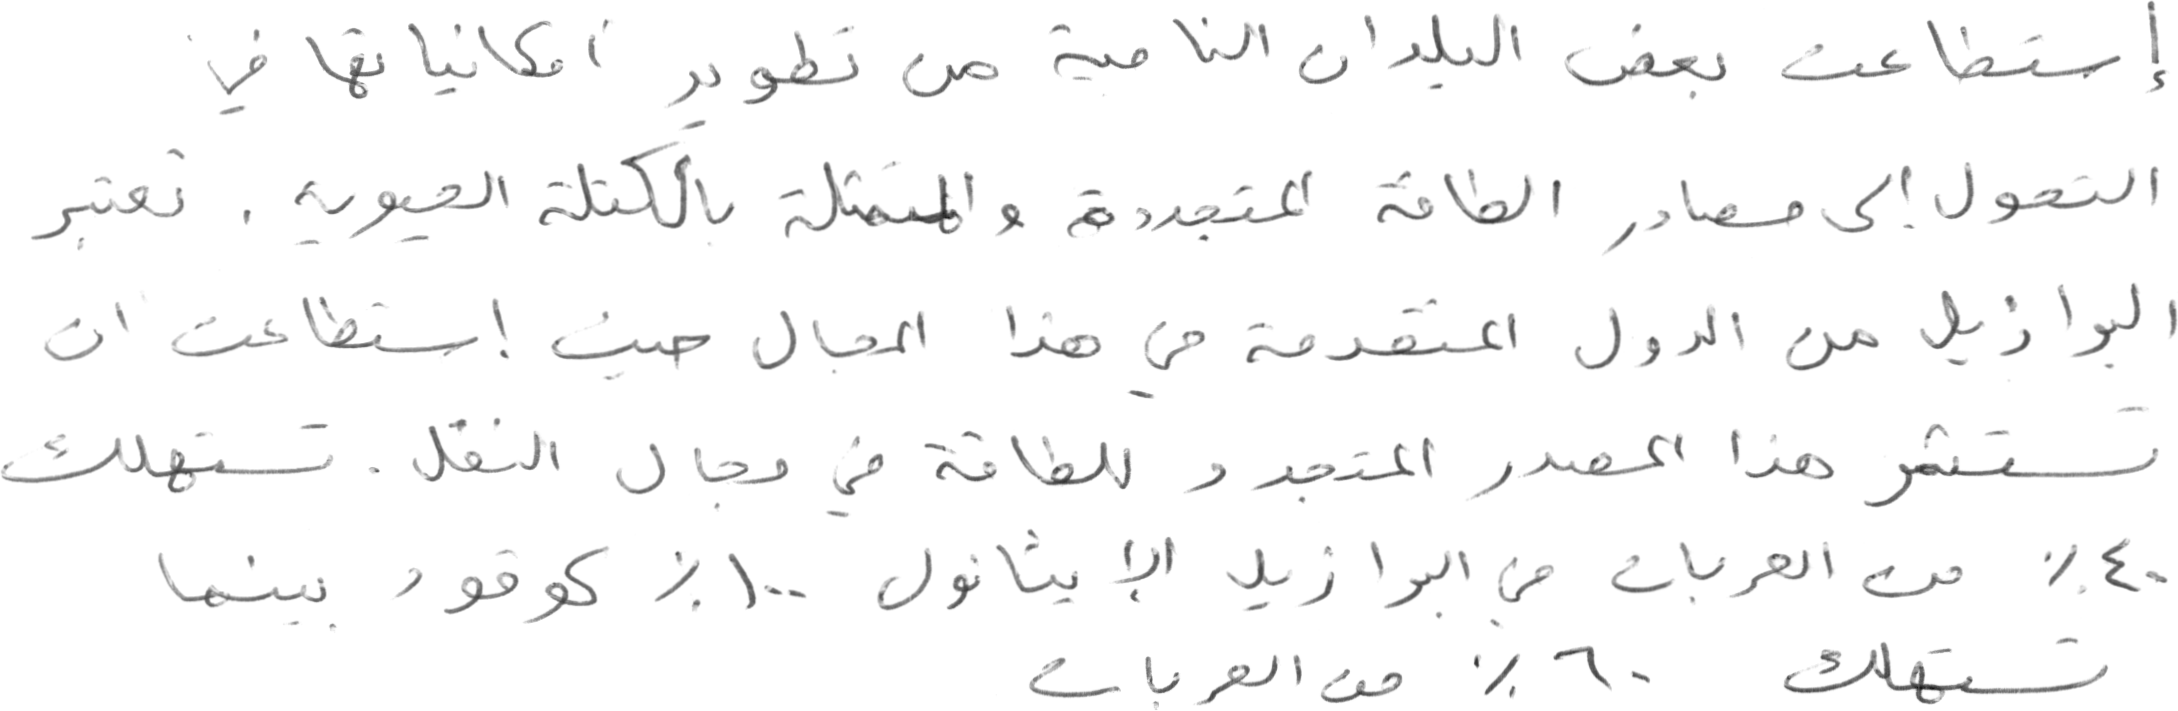 إستطاعت بعض البلدان النامية من تطوير امكانياتها في
التحول إلى مصادر الطاقة المتجددة والمتمثلة بالكتلة الحيوية . تعتبر
البرازيل من الدول المتقدمة في هذا المجال حيث إستطاعت ان
تستثمر هذا المصدر المتجدد للطاقة في مجال النقل . تستهلك
٤٠٪ من العربات في البرازيل الإيثانول ١٠٠٪ كوقود بينما
تستهلك ٦٠٪ من العربات